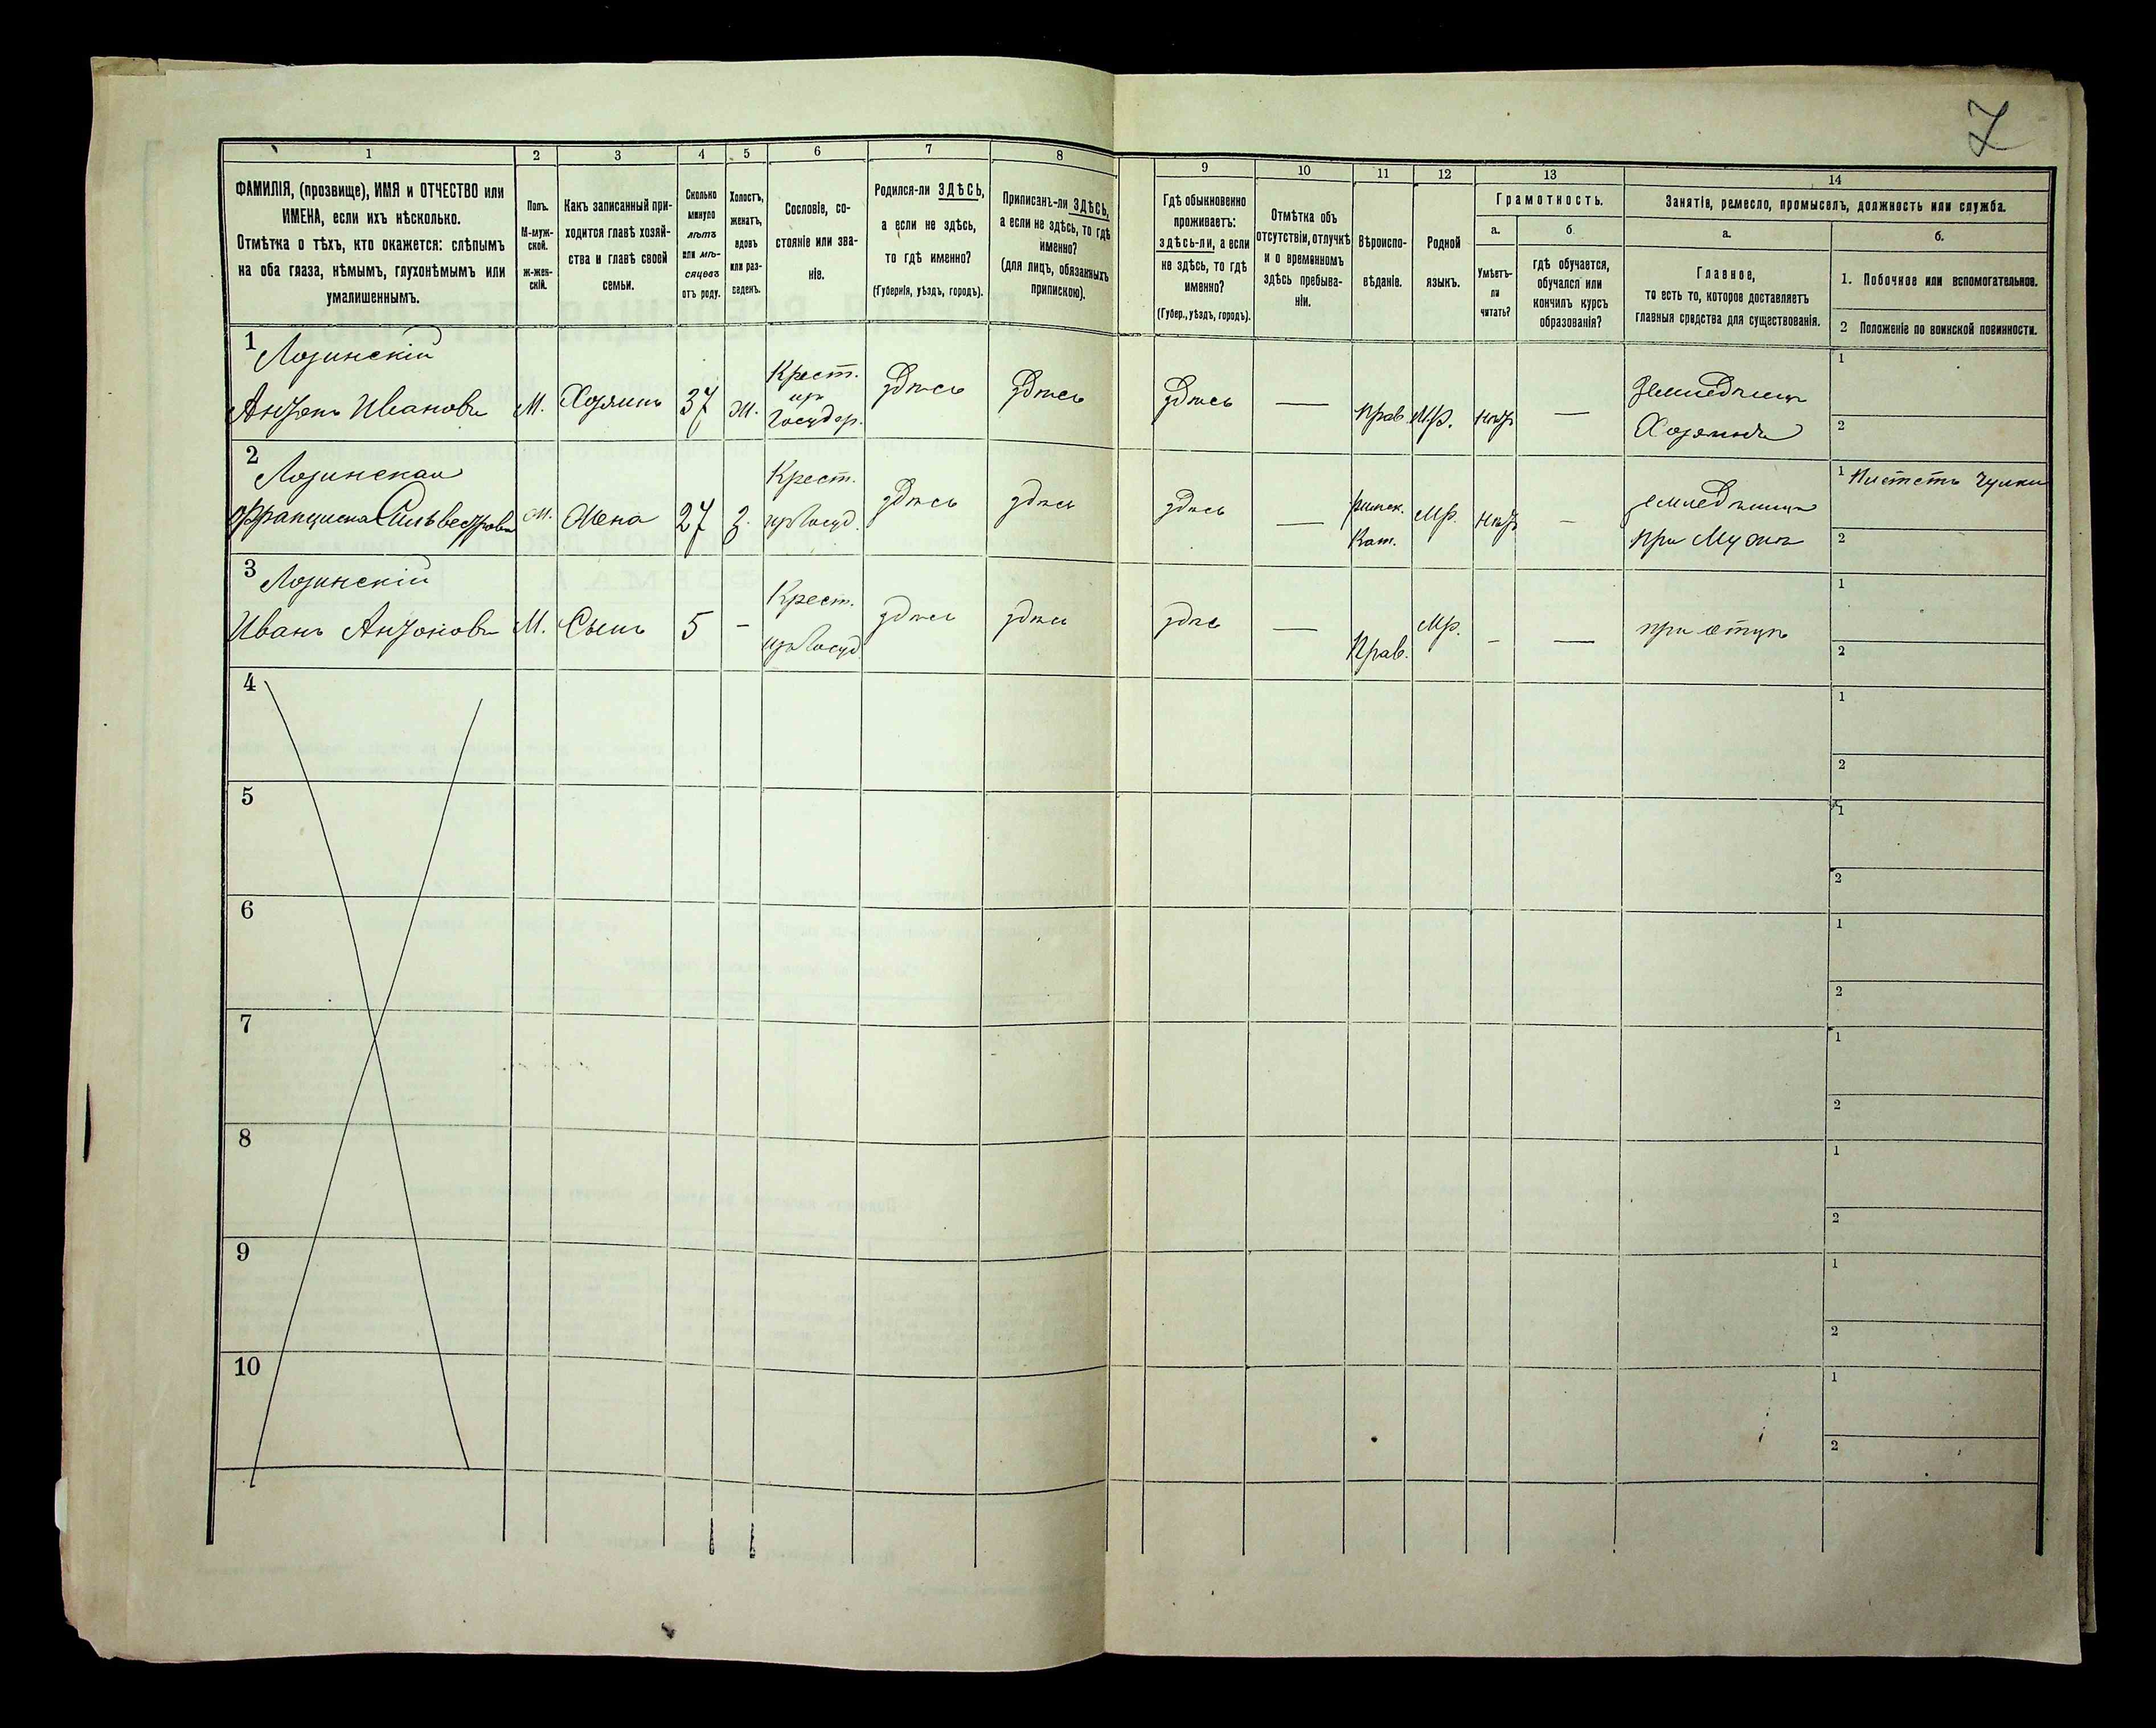 7
1 2 3 4 5 6 7 8 9 10 11 12 13 14
ФАМИЛІЯ, (прозвище), ИМЯ и ОТЧЕСТВО или
ИМЕНА, если ихъ нѣсколько.
Отмѣтка о тѣхъ, кто окажется: слѣпымъ
на оба глаза, нѣмымъ, глухонѣмымъ или
умалишеннымъ.
Полъ.
М-муж-
ской.
ж-жен-
скій.
Какъ записанный при-
ходится главѣ хозяй-
ства и главѣ своей
семьи.
Сколько
минуло
лѣтъ
или мѣ-
сяцевъ
отъ роду.
Холостъ,
женатъ,
вдовъ
или раз-
веденъ.
Сословіе, со-
стояніе или зва-
ніе.
Родился-ли ЗДѢСЬ,
а если не здѣсь,
то гдѣ именно?
(Губернія, уѣздъ, городъ).
Приписанъ-ли ЗДѢСЬ,
а если не здѣсь, то гдѣ
именно?
(для лицъ, обязанныхъ
припискою).
Гдѣ обыкновенно
проживаетъ:
здѣсь-ли, а если
не здѣсь, то гдѣ
именно?
(Губер., уѣздъ, городъ).
Отмѣтка объ
отсутствіи, отлучкѣ
и о временномъ
здѣсь пребыва-
ніи.
Вѣроиспо-
вѣданіе.
Родной
языкъ.
Грамотность.
а.
Умѣетъ-
ли
читать?
б.
гдѣ обучается,
обучался или
кончилъ курсъ
образованія?
Занятіе, ремесло, промыселъ, должность или служба.
а.
Главное,
то есть то, которое доставляетъ
главныя средства для существованія.
б.
1. Побочное или вспомогательное.
2 Положеніе по воинской повинности.
1 Лозинскій
Антонъ Ивановъ М. Хозяинъ 37 ж. Крест. из Государ. здѣсь здѣсь здѣсь — Прав. Мр. нѣт — Земледѣлец Хозяинъ 1 2
2 Лозинская
Франциска Сильвестрова Жена 27 з. Крест. из Госуд. здѣсь здѣсь здѣсь — римск. Кат. Мр. нѣт — земледѣлица при Мужѣ 1 Плететъ Чулки 2
3 Лозинскій
Иванъ Антоновъ М. Сынъ 5 - Крест. из Госуд. здѣсь здѣсь здѣс — Прав. Мр. - — при отцѣ 1 2
4 1 2
5 1 2
6 1 2
7 1 2
8 1 2
9 1 2
10 1 2